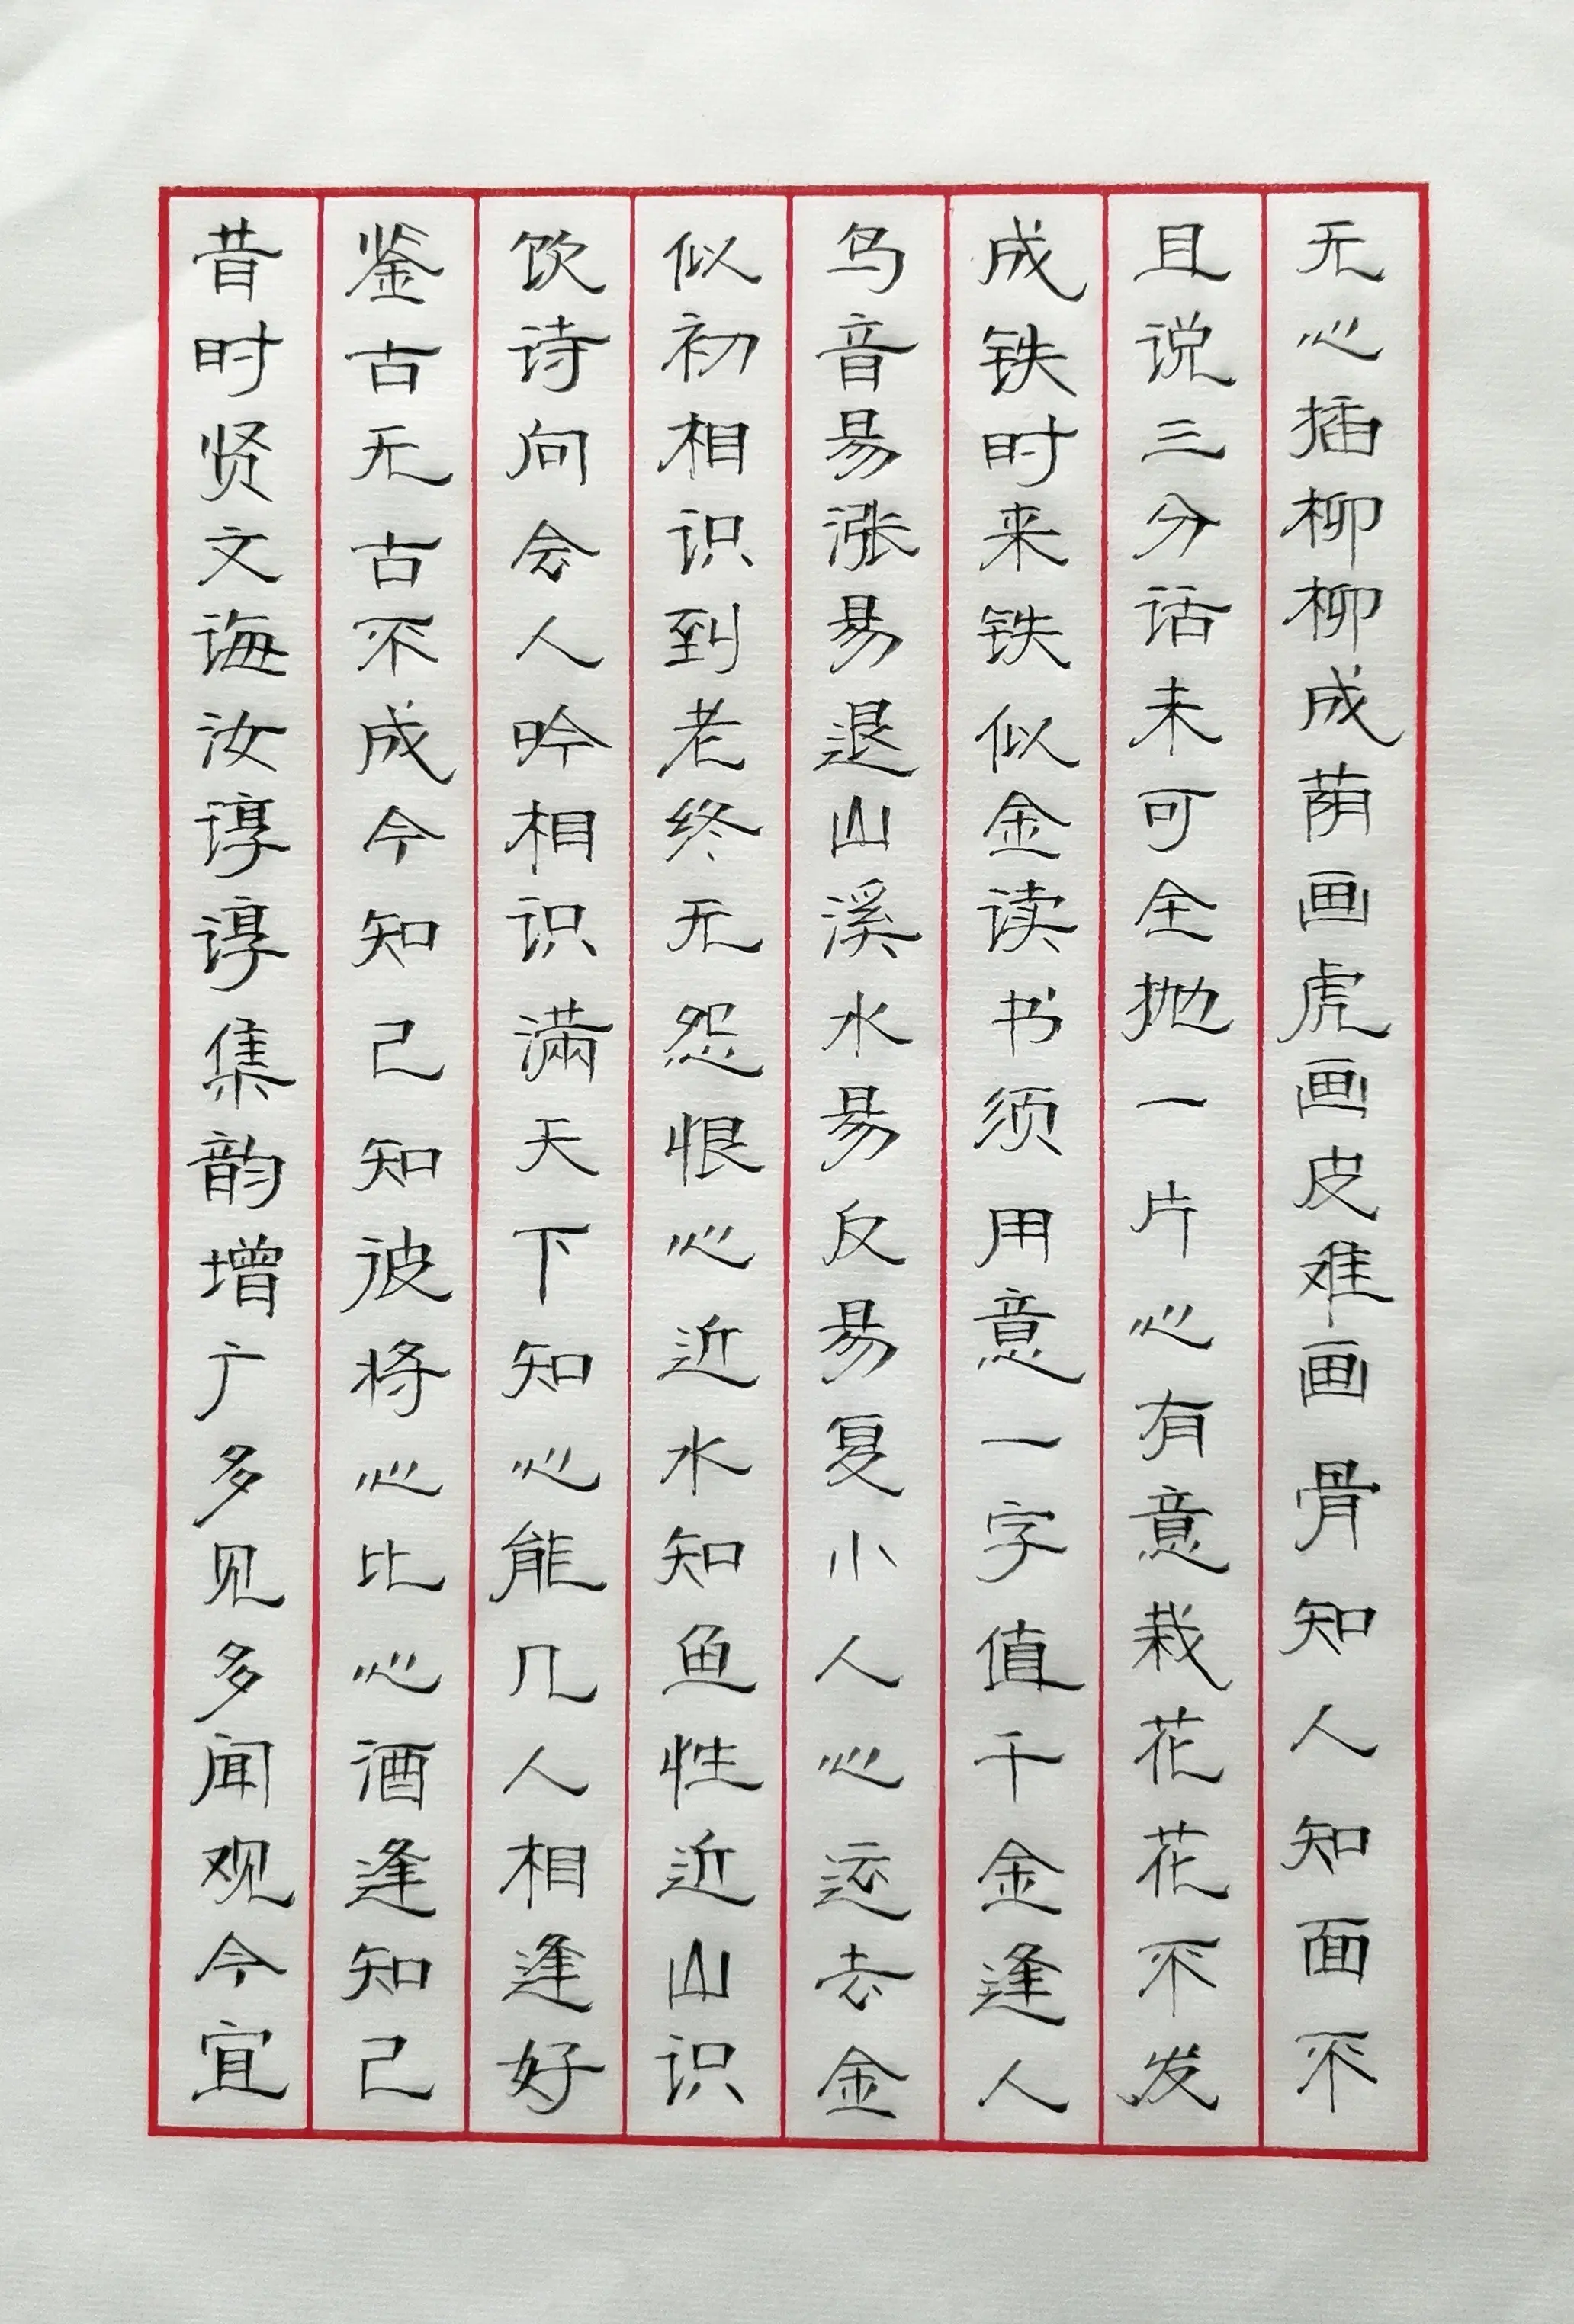 昔时贤文诲汝谆谆集韵增广多见多闻观今宜
鉴古无古不成今知己知彼将心比心酒逢知己
饮诗向会人吟相识滿天下知心能几人相逢好
似初相识到老终无怨恨心近水知鱼性近山识
鸟音易涨易退山溪水易反易复小人心运去金
成铁时来铁似金读书须用意一字值千金逢人
且说三分话未可全抛一片心有意栽花花不发
无心插柳柳成荫画虎画皮难画骨知人知面不